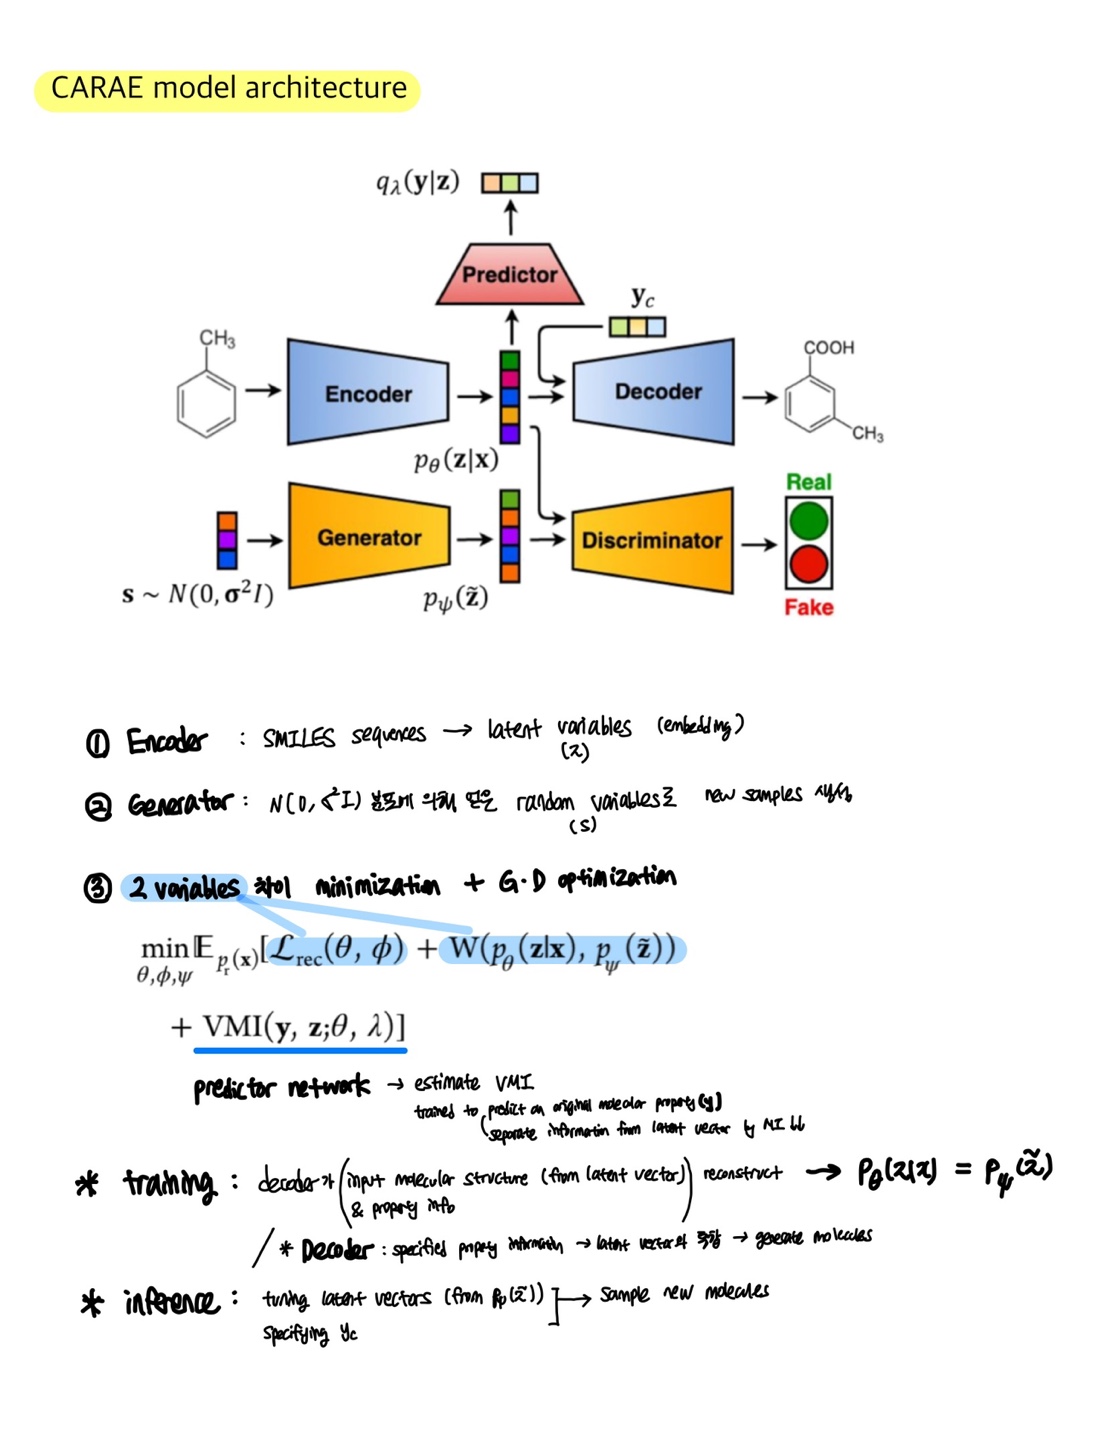 CARAE model architecture
qλ(y|z)
Predictor
yc
CH₃
Encoder
Decoder
COOH
CH₃
pθ(z|x)
Real
Generator
Discriminator
s ~ N(0, σ²I)
pψ(z̃)
Fake
① Encoder : SMILES sequences → latent variables (embedding)
(z)
② Generator : N(0, σ²I) 분포에 의해 얻은 random variables로 new samples 생성
(s)
③ 2 variables 차이 minimization + G·D optimization
min E pr(x)[ℒrec(θ, ϕ) + W(pθ(z|x), pψ(z̃))
θ,ϕ,ψ
+ VMI(y, z;θ, λ)]
predictor network → estimate VMI
trained to predict an original molecular property (y)
separate information from latent vector by MI ↓↓
* training : decoder가 (input molecular structure (from latent vector)) reconstruct → pθ(z|x) = pψ(z̃)
& property info
* Decoder : specified property information → latent vector와 통합 → generate molecules
* inference : tuning latent vectors (from pψ(z̃)) → sample new molecules
specifying yc